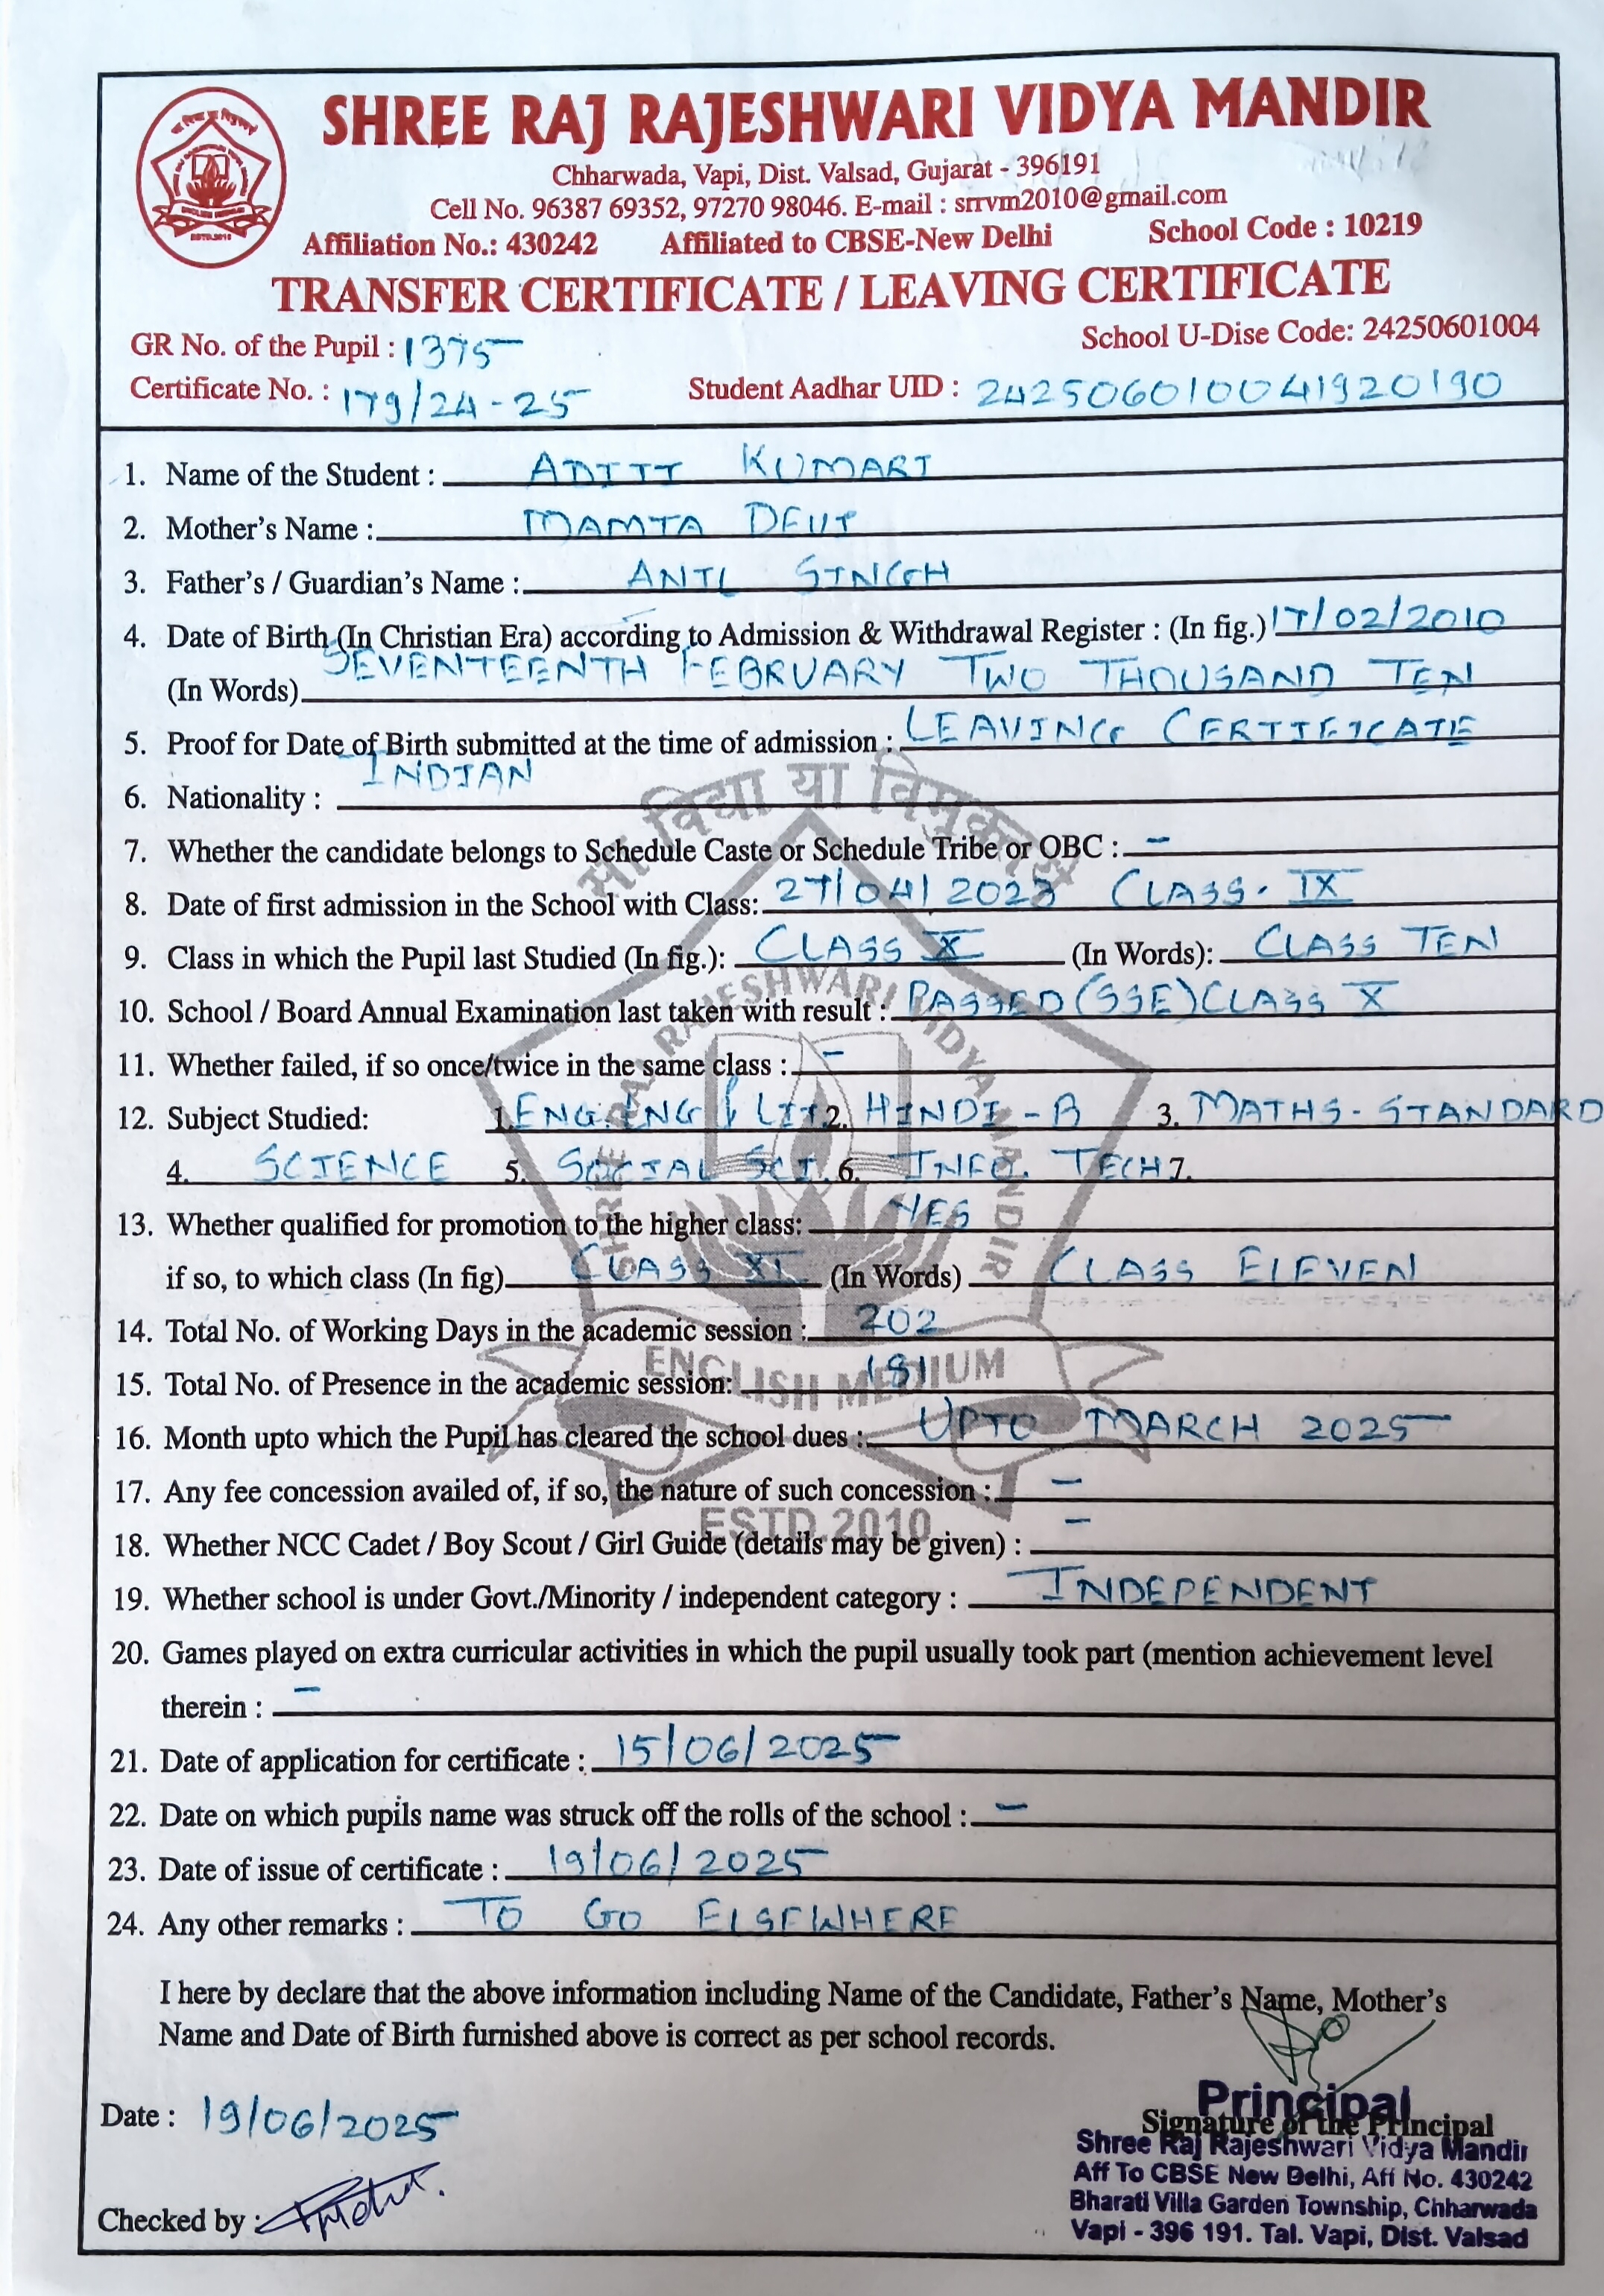 SHREE RAJ RAJESHWARI VIDYA MANDIR
Chharwada, Vapi, Dist. Valsad, Gujarat - 396191
Cell No. 96387 69352, 97270 98046. E-mail : srrvm2010@gmail.com
Affiliation No.: 430242 Affiliated to CBSE-New Delhi School Code : 10219
TRANSFER CERTIFICATE / LEAVING CERTIFICATE
GR No. of the Pupil : 1375 School U-Dise Code: 24250601004
Certificate No. : 179/24-25 Student Aadhar UID : 242506010041920190
1. Name of the Student : ADITI KUMARI
2. Mother's Name : MAMTA DEVI
3. Father's / Guardian's Name : ANIL SINGH
4. Date of Birth (In Christian Era) according to Admission & Withdrawal Register : (In fig.) 17/02/2010
(In Words) SEVENTEENTH FEBRUARY TWO THOUSAND TEN
5. Proof for Date of Birth submitted at the time of admission : LEAVING CERTIFICATE
6. Nationality : INDIAN
7. Whether the candidate belongs to Schedule Caste or Schedule Tribe or OBC : -
8. Date of first admission in the School with Class: 27/04/2023 CLASS - IX
9. Class in which the Pupil last Studied (In fig.): CLASS X (In Words): CLASS TEN
10. School / Board Annual Examination last taken with result : PASSED (SSE) CLASS X
11. Whether failed, if so once/twice in the same class : -
12. Subject Studied: 1. ENG. ENG & LIT 2. HINDI - B 3. MATHS - STANDARD
4. SCIENCE 5. SOCIAL SCI. 6. INFO. TECH 7.
13. Whether qualified for promotion to the higher class: YES
if so, to which class (In fig) CLASS XI (In Words) CLASS ELEVEN
14. Total No. of Working Days in the academic session : 202
15. Total No. of Presence in the academic session: 181
16. Month upto which the Pupil has cleared the school dues : UPTO MARCH 2025
17. Any fee concession availed of, if so, the nature of such concession : -
18. Whether NCC Cadet / Boy Scout / Girl Guide (details may be given) : -
19. Whether school is under Govt./Minority / independent category : INDEPENDENT
20. Games played on extra curricular activities in which the pupil usually took part (mention achievement level
therein : -
21. Date of application for certificate : 15/06/2025
22. Date on which pupils name was struck off the rolls of the school : -
23. Date of issue of certificate : 19/06/2025
24. Any other remarks : TO GO ELSEWHERE
I here by declare that the above information including Name of the Candidate, Father's Name, Mother's
Name and Date of Birth furnished above is correct as per school records.
Date : 19/06/2025
Principal
Signature of the Principal
Shree Raj Rajeshwari Vidya Mandir
Aff To CBSE New Delhi, Aff No. 430242
Bharati Villa Garden Township, Chharwada
Vapi - 396 191. Tal. Vapi, Dist. Valsad
Checked by :
सा विद्या या विमुक्तये
SHREE RAJ RAJESHWARI VIDYA MANDIR
ENGLISH MEDIUM
ESTD. 2010